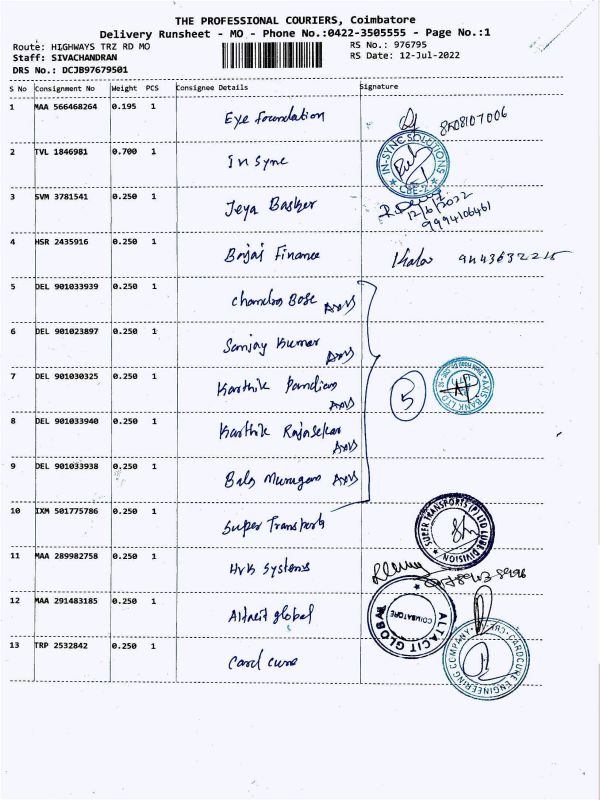 THE PROFESSIONAL COURIERS, Coimbatore
Delivery Runsheet - MO - Phone No.:0422-3505555 - Page No.:1
Route: HIGHWAYS TRZ RD MO RS No.: 976795
Staff: SIVACHANDRAN RS Date: 12-Jul-2022
DRS No.: DCJB97679501
S No Consignment No Weight PCS Consignee Details Signature
1 MAA 566468264 0.195 1 Eye foundation
2 TVL 1846981 0.700 1 In Sync
IN-SYNC SOLUTIONS
CBE-2
3 SVM 3781541 0.250 1 Jeya Basker
12/6/2022
9994106461
4 HSR 2435916 0.250 1 Bajaj Finance Kala 9443632215
5 DEL 901033939 0.250 1 Chandra Bose Axis
6 DEL 901023897 0.250 1 Sanjay Kumar Axis
7 DEL 901030325 0.250 1 Karthik Pandian Axis 5
AXIS BANK LTD
8 DEL 901033940 0.250 1 Karthik Rajasekar Axis
9 DEL 901033938 0.250 1 Bala Murugan Axis
10 IXM 501775786 0.250 1 Super Transports
SUPER TRANSPORTS (P) LTD LUBE DIVISION
11 MAA 289982758 0.250 1 Systems
12 MAA 291483185 0.250 1 Altacit global
ALTACIT GLOBAL
COIMBATORE
13 TRP 2532842 0.250 1 Card cure
CARDCURE ENGINEERING COMPANY